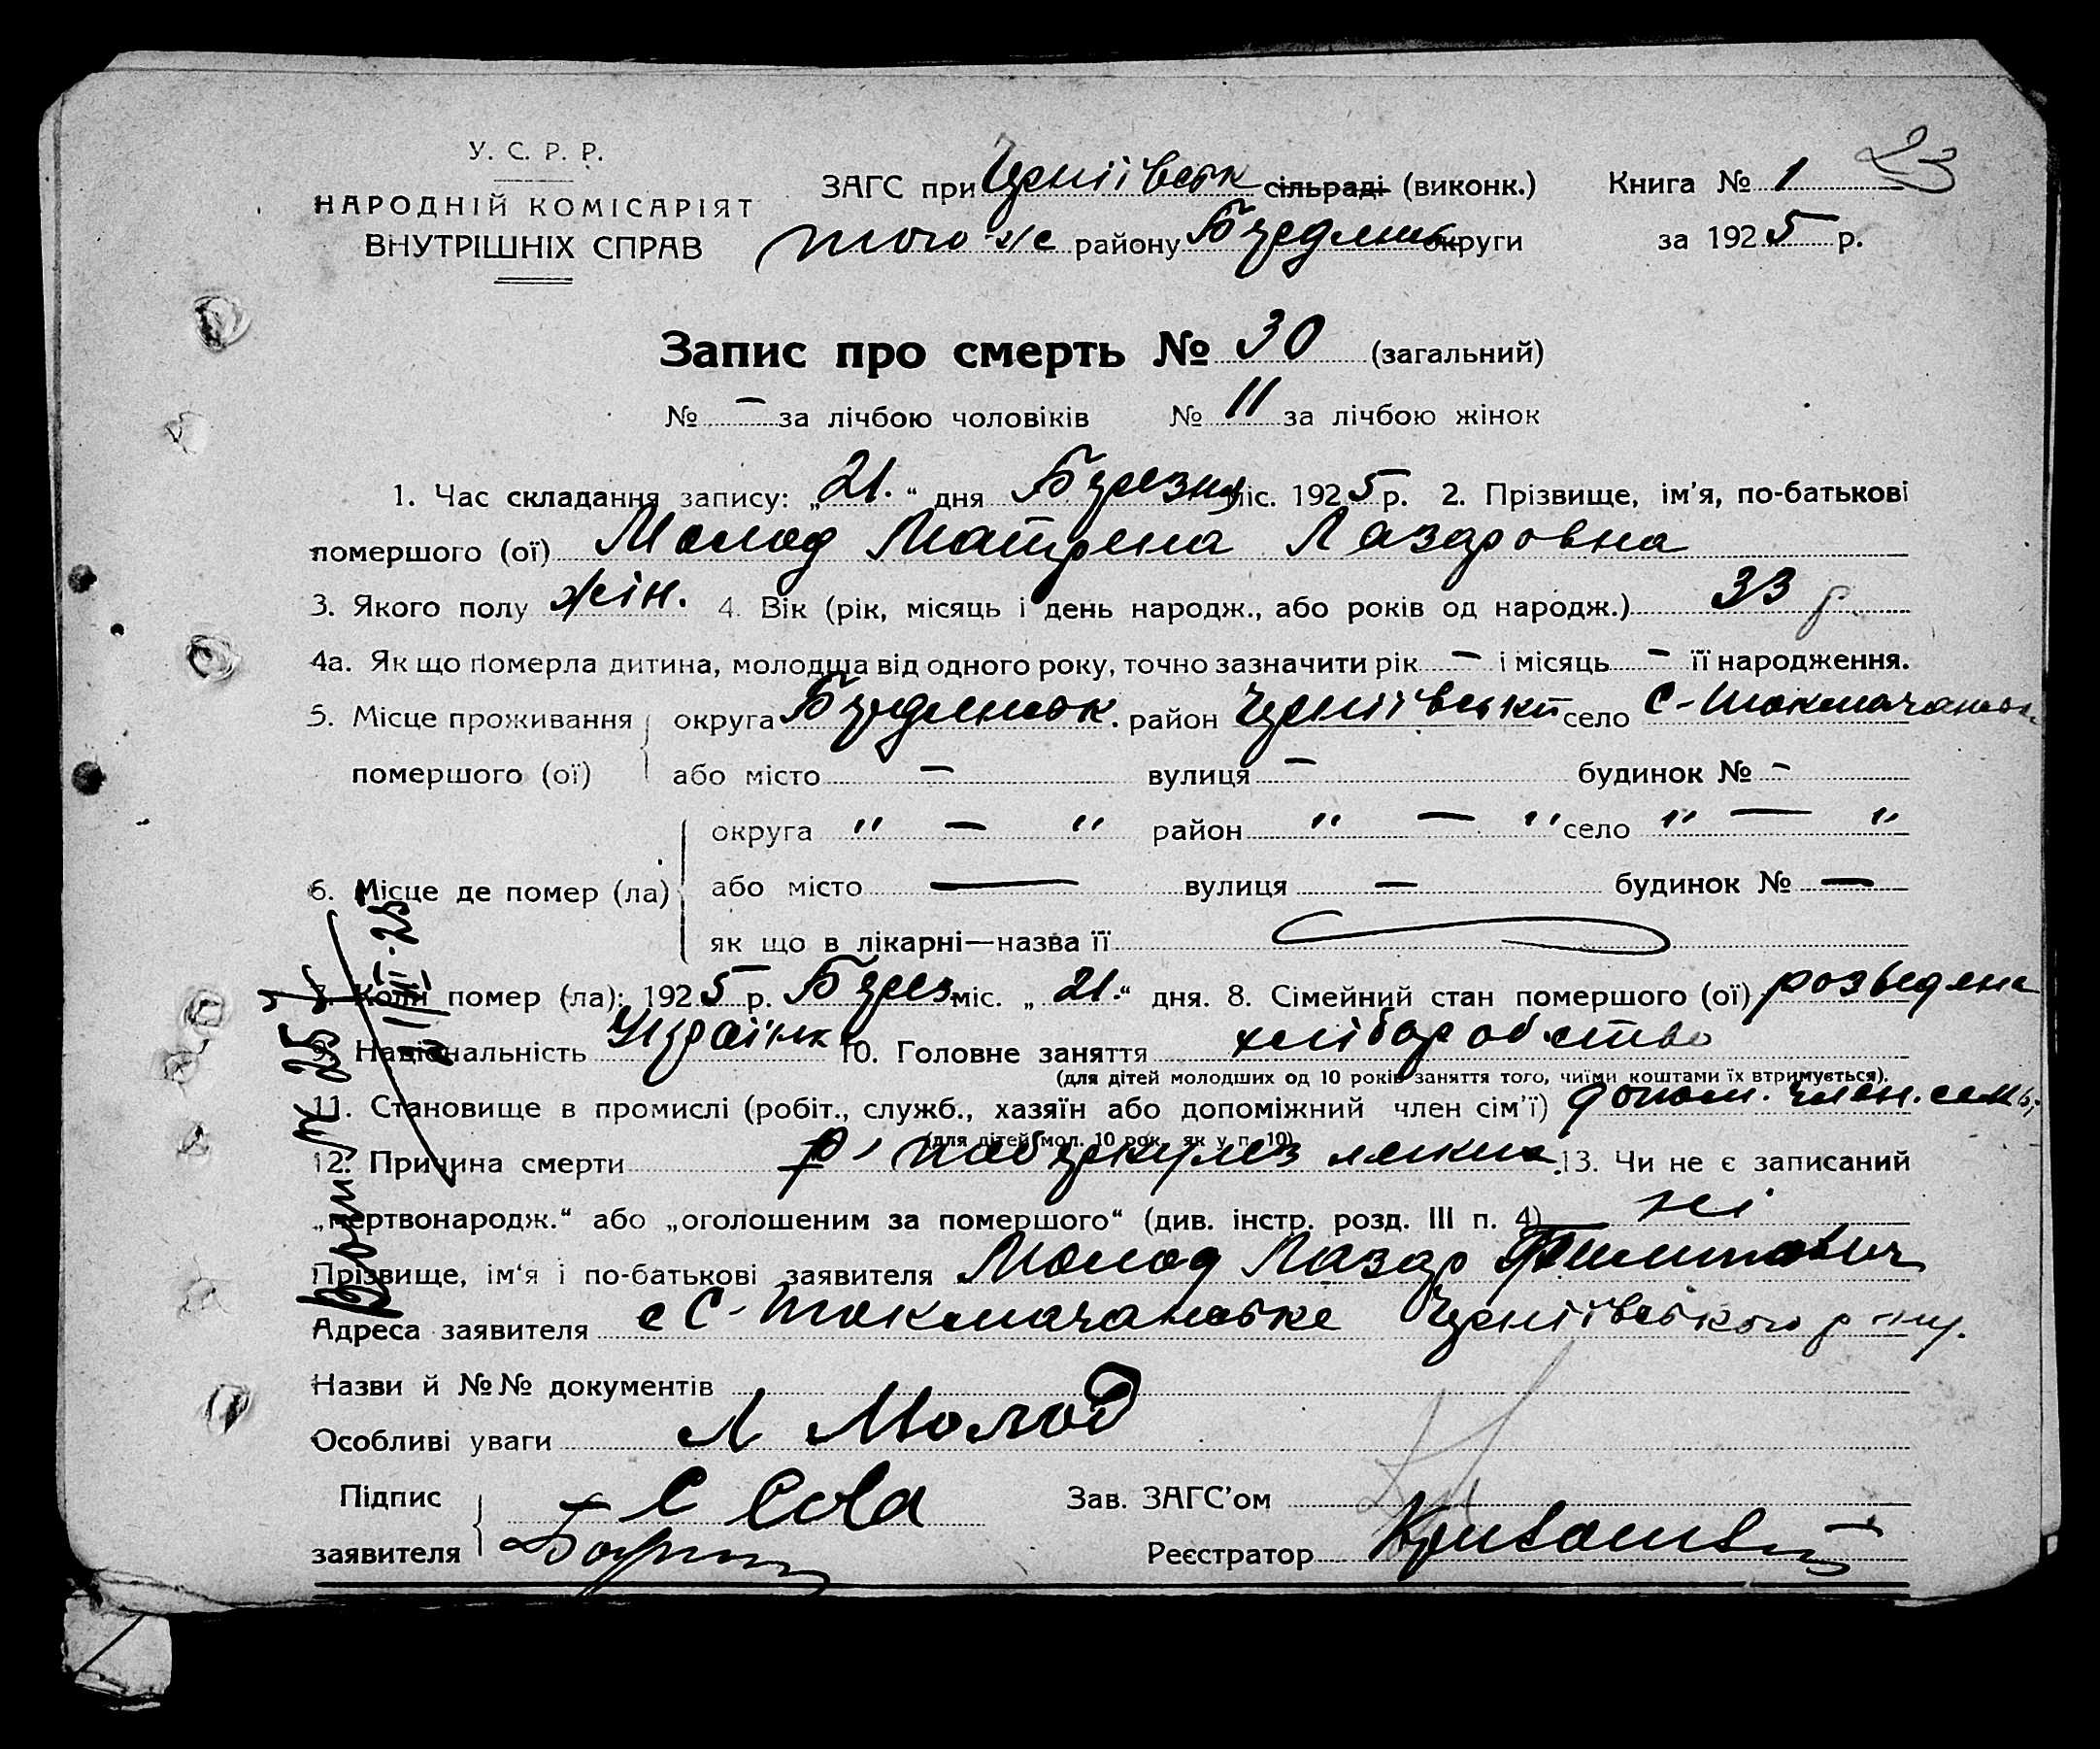 23
У. С. Р. Р.
НАРОДНІЙ КОМІСАРІЯТ
ВНУТРІШНІХ СПРАВ
ЗАГС при сільраді (виконк.) Книга № 1
того-же району округи за 1925 р.
Запис про смерть № 30 (загальний)
№ – за лічбою чоловіків № 11 за лічбою жінок
1. Час складання запису: „21.“ дня Березня міс. 1925 р. 2. Прізвище, ім'я, по-батькові
помершого (ої) Молод Матрена Лазаровна
3. Якого полу жін. 4. Вік (рік, місяць і день народж., або років од народж.) 33 р.
4а. Як що померла дитина, молодша від одного року, точно зазначити рік – і місяць – її народження.
5. Місце проживання округа район село
помершого (ої) або місто – вулиця – будинок № –
округа " – " район " – " село " – "
6. Місце де помер (ла) або місто — вулиця — будинок № —
як що в лікарні—назва її
7. Коли помер (ла): 1925 р. Берез міс. „21.“ дня. 8. Сімейний стан помершого (ої) розведена
9. Національність Українка 10. Головне заняття хліборобство
(для дітей молодших од 10 років заняття того, чиїми коштами їх втримується).
11. Становище в промислі (робіт., служб., хазяїн або допоміжний член сім'ї) допом. член. семьї
(для дітей мол. 10 рок. як у п. 10)
12. Причина смерти туберкулез легких. 13. Чи не є записаний
„мертвонародж.“ або „оголошеним за помершого“ (див. інстр. розд. III п. 4) ні
Прізвище, ім'я і по-батькові заявителя Молод Лазар
Адреса заявителя с С-Токмачанське
Назви й №№ документів
Особливі уваги Л Молод
Підпис Зав. ЗАГС'ом
заявителя Реєстратор